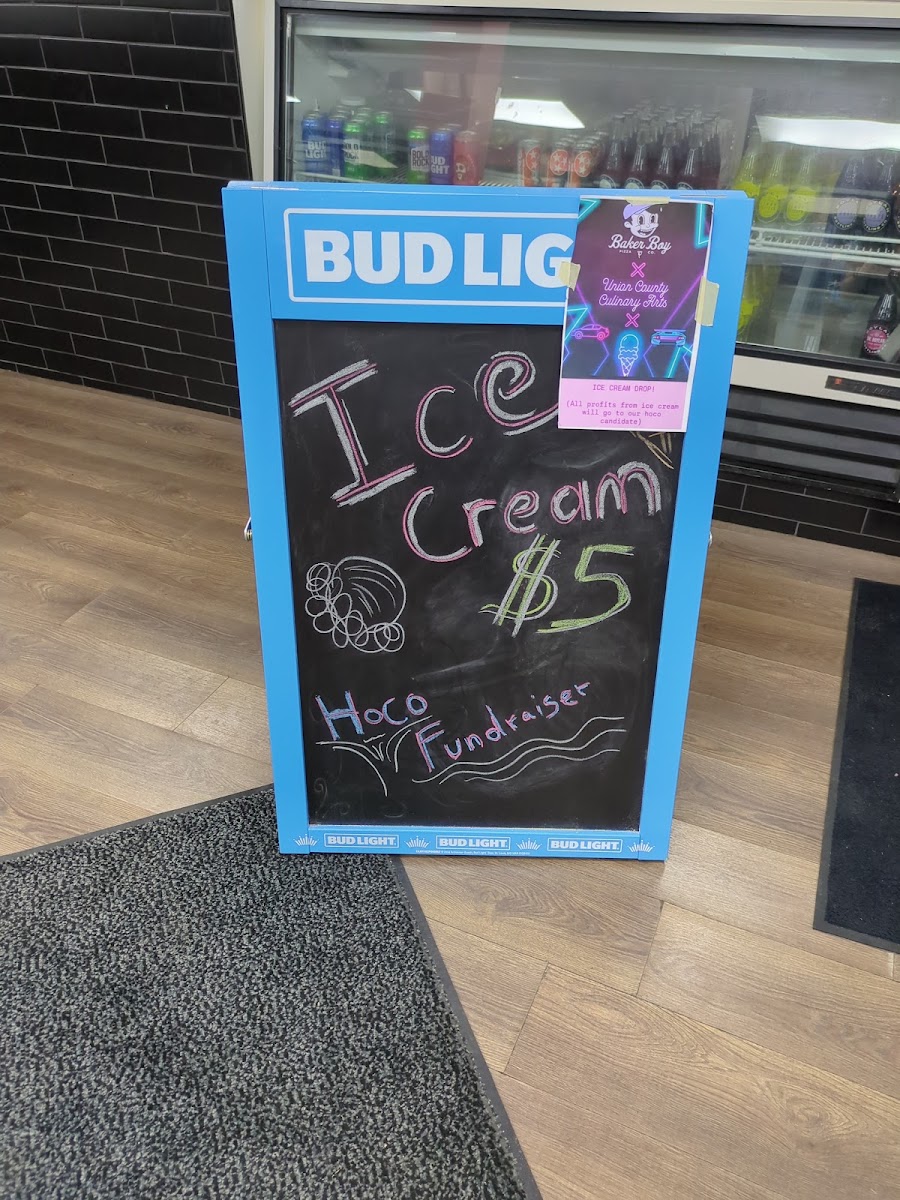 BUD LIGHT
GOLD ROCK
BUD LIGHT
BUD LIG
Baker Boy
PIZZA P CO.
X
Union County
Culinary Arts
X
ICE CREAM DROP!
(All profits from ice cream
will go to our hoco
candidate)
Ice
Cream
$5
Hoco
Fundraiser
BUD LIGHT BUD LIGHT. BUD LIGHT.